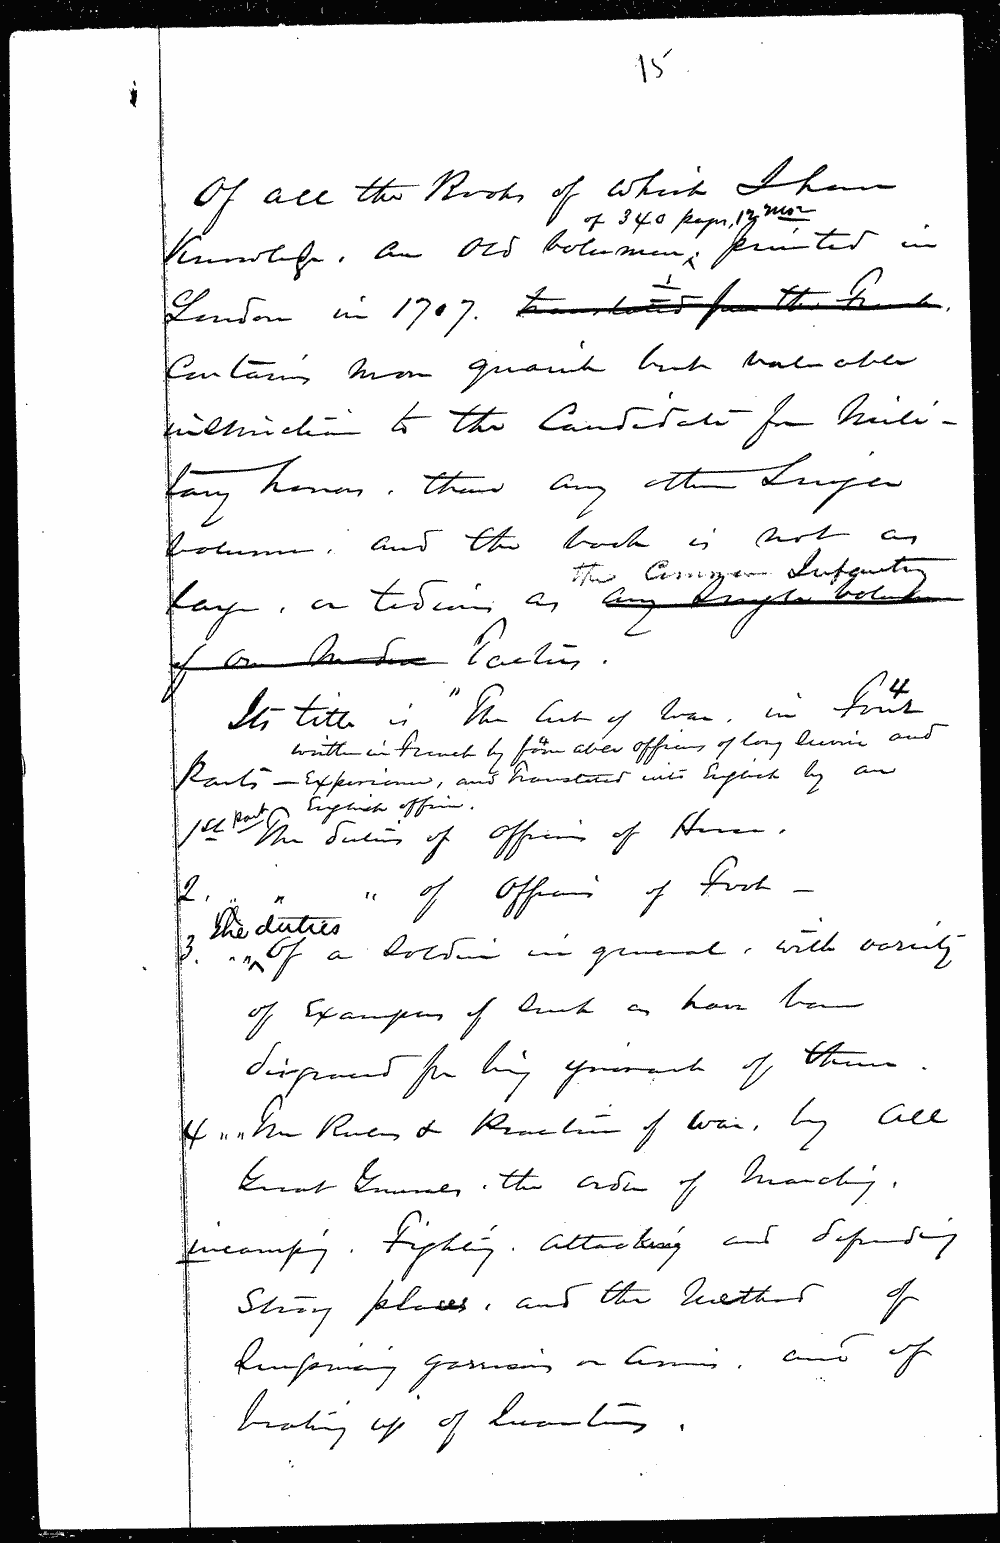 15
Of all the Books of which I have
of 340 pages, 12 mo
Knowledge, an Old volume, printed in
London in 1707. translated from the French.
Contains more quaint but valuable
instruction to the Candidate for Mili-
tary honors, than any other Single
volume, and the book is not as
the Common Infantry
large, or tedious as any Single volume
of our Modern Tactics.
Its title is "The Art of War, in Four 4
written in French by four able officers of long service and
Parts — Experience, and translated into English by an
English officer.
1st part The duties of officers of Horse.
2. " " " of Officers of Foot —
The duties
3. " " Of a Soldier in general, with variety
of Examples of Such as have been
disgraced for being ignorant of them.
4 " " The Rules & Practice of War, by all
Great Generals, the order of Marching,
incamping, Fighting, attacking and defending
Strong places, and the Method of
Surprising garrisons or Armies, and of
beating up of Quarters.